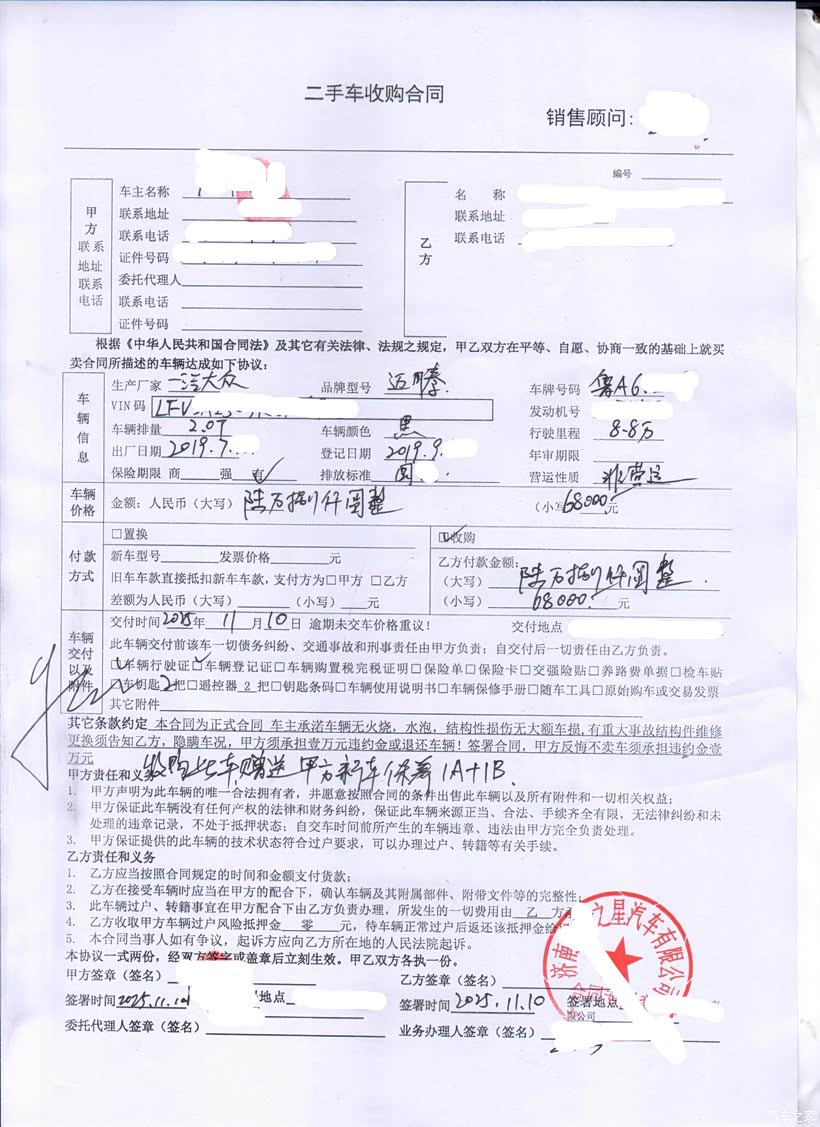 二手车收购合同
销售顾问:
编号
甲方
联系地址
联系电话
车主名称
联系地址
联系电话
证件号码
委托代理人
联系电话
证件号码
乙方
名 称
联系地址
联系电话
根据《中华人民共和国合同法》及其它有关法律、法规之规定，甲乙双方在平等、自愿、协商一致的基础上就买
卖合同所描述的车辆达成如下协议:
车辆信息
生产厂家 一汽大众 品牌型号 迈腾 车牌号码 鲁A6
VIN 码 LFV 发动机号
车辆排量 2.0T 车辆颜色 黑 行驶里程 8.8万
出厂日期 2019.7 登记日期 2019.9. 年审期限
保险期限 商 强 有 排放标准 国 营运性质 非营运
车辆价格 金额：人民币（大写） 陆万捌仟圆整 （小写）68000.元
付款方式
□置换 ☑收购
新车型号 发票价格 元 乙方付款金额:
旧车车款直接抵扣新车车款，支付方为□甲方 □乙方 （大写） 陆万捌仟圆整.
差额为人民币（大写） （小写） 元 （小写） 68000. 元
车辆交付以及附件
交付时间 2025年 11 月 10 日 逾期未交车价格重议！ 交付地点
此车辆交付前该车一切债务纠纷、交通事故和刑事责任由甲方负责；自交付后一切责任由乙方负责。
☑车辆行驶证☑车辆登记证□车辆购置税完税证明□保险单□保险卡□交强险贴□养路费单据□检车贴
☑车钥匙 2 把□遥控器 2 把□钥匙条码□车辆使用说明书□车辆保修手册□随车工具□原始购车或交易发票
其它附件
其它条款约定 本合同为正式合同 车主承诺车辆无火烧，水泡，结构性损伤无大额车损，有重大事故结构件维修
更换须告知乙方，隐瞒车况，甲方须承担壹万元违约金或退还车辆！签署合同，甲方反悔不卖车须承担违约金壹
万元
收购此车赠送甲方新车保养1A+1B.
甲方责任和义务
1. 甲方声明为此车辆的唯一合法拥有者，并愿意按照合同的条件出售此车辆以及所有附件和一切相关权益；
2. 甲方保证此车辆没有任何产权的法律和财务纠纷，保证此车辆来源正当、合法、手续齐全有限，无法律纠纷和未
处理的违章记录，不处于抵押状态；自交车时间前所产生的车辆违章、违法由甲方完全负责处理。
3. 甲方保证提供的此车辆的技术状态符合过户要求，可以办理过户、转籍等有关手续。
乙方责任和义务
1. 乙方应当按照合同规定的时间和金额支付货款；
2. 乙方在接受车辆时应当在甲方的配合下，确认车辆及其附属部件、附带文件等的完整性；
3. 此车辆过户、转籍事宜在甲方配合下由乙方负责办理，所发生的一切费用由 乙 方
4. 乙方收取甲方车辆过户风险抵押金 零 元，待车辆正常过户后返还该抵押金给
5. 本合同当事人如有争议，起诉方应向乙方所在地的人民法院起诉。
本协议一式两份，经双方签字或盖章后立刻生效。甲乙双方各执一份。
甲方签章（签名） 乙方签章（签名）
签署时间 2025.11.10 署地点 签署时间 2025.11.10 签署地点
限公司
委托代理人签章（签名） 业务办理人签章（签名）
济南 之星汽车有限公司
汽车之家